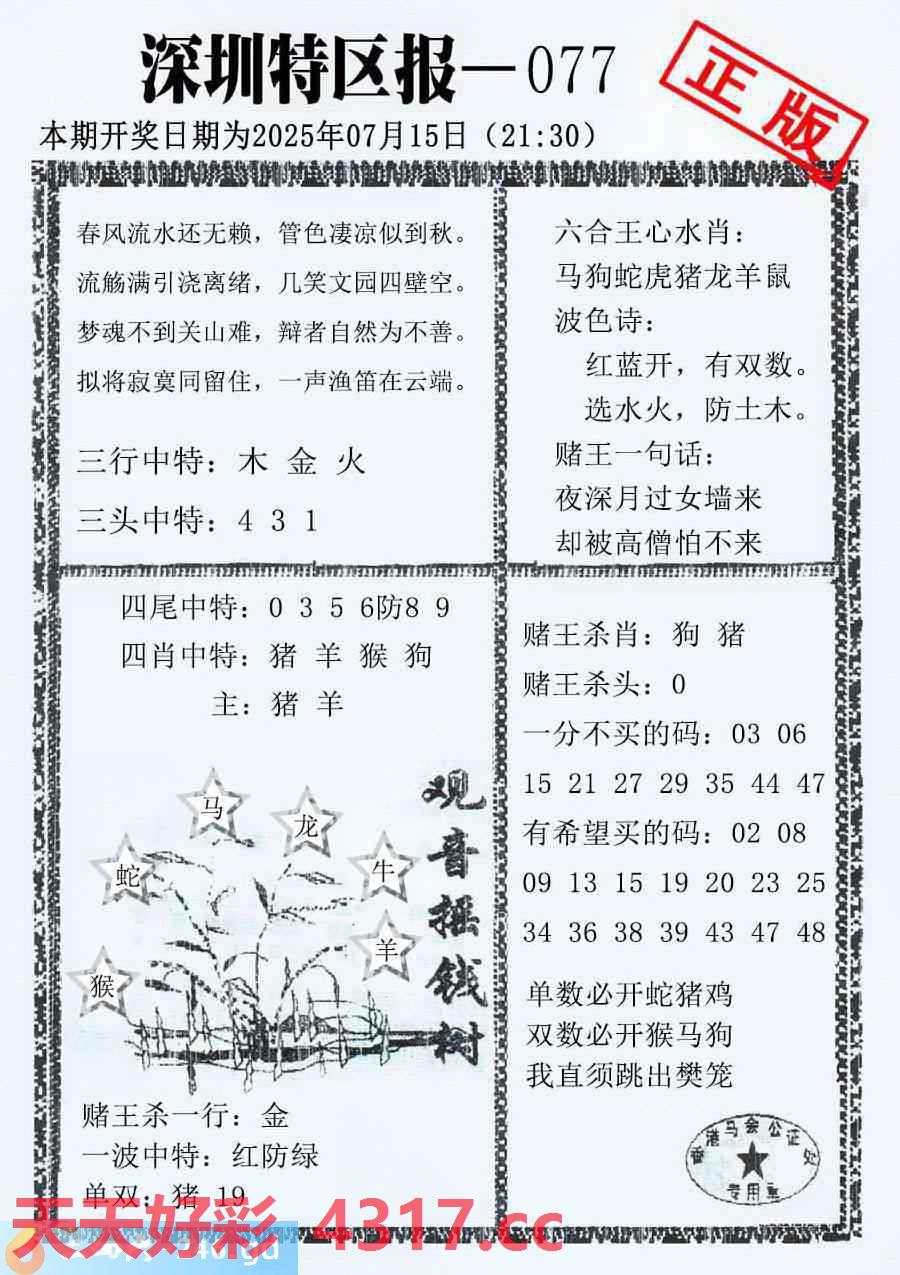 深圳特区报—077
正版
本期开奖日期为2025年07月15日（21:30）
春风流水还无赖，管色凄凉似到秋。
流觞满引浇离绪，几笑文园四壁空。
梦魂不到关山难，辩者自然为不善。
拟将寂寞同留住，一声渔笛在云端。
三行中特：木 金 火
三头中特：4 3 1
六合王心水肖：
马狗蛇虎猪龙羊鼠
波色诗：
红蓝开，有双数。
选水火，防土木。
赌王一句话：
夜深月过女墙来
却被高僧怕不来
四尾中特：0 3 5 6防8 9
四肖中特：猪 羊 猴 狗
主：猪 羊
马
龙
蛇
牛
羊
猴
观音摇钱树
赌王杀一行：金
一波中特：红防绿
单双：猪 19
赌王杀肖：狗 猪
赌王杀头：0
一分不买的码：03 06
15 21 27 29 35 44 47
有希望买的码：02 08
09 13 15 19 20 23 25
34 36 38 39 43 47 48
单数必开蛇猪鸡
双数必开猴马狗
我直须跳出樊笼
香港马会公证处
专用章
天天好彩 4317.cc